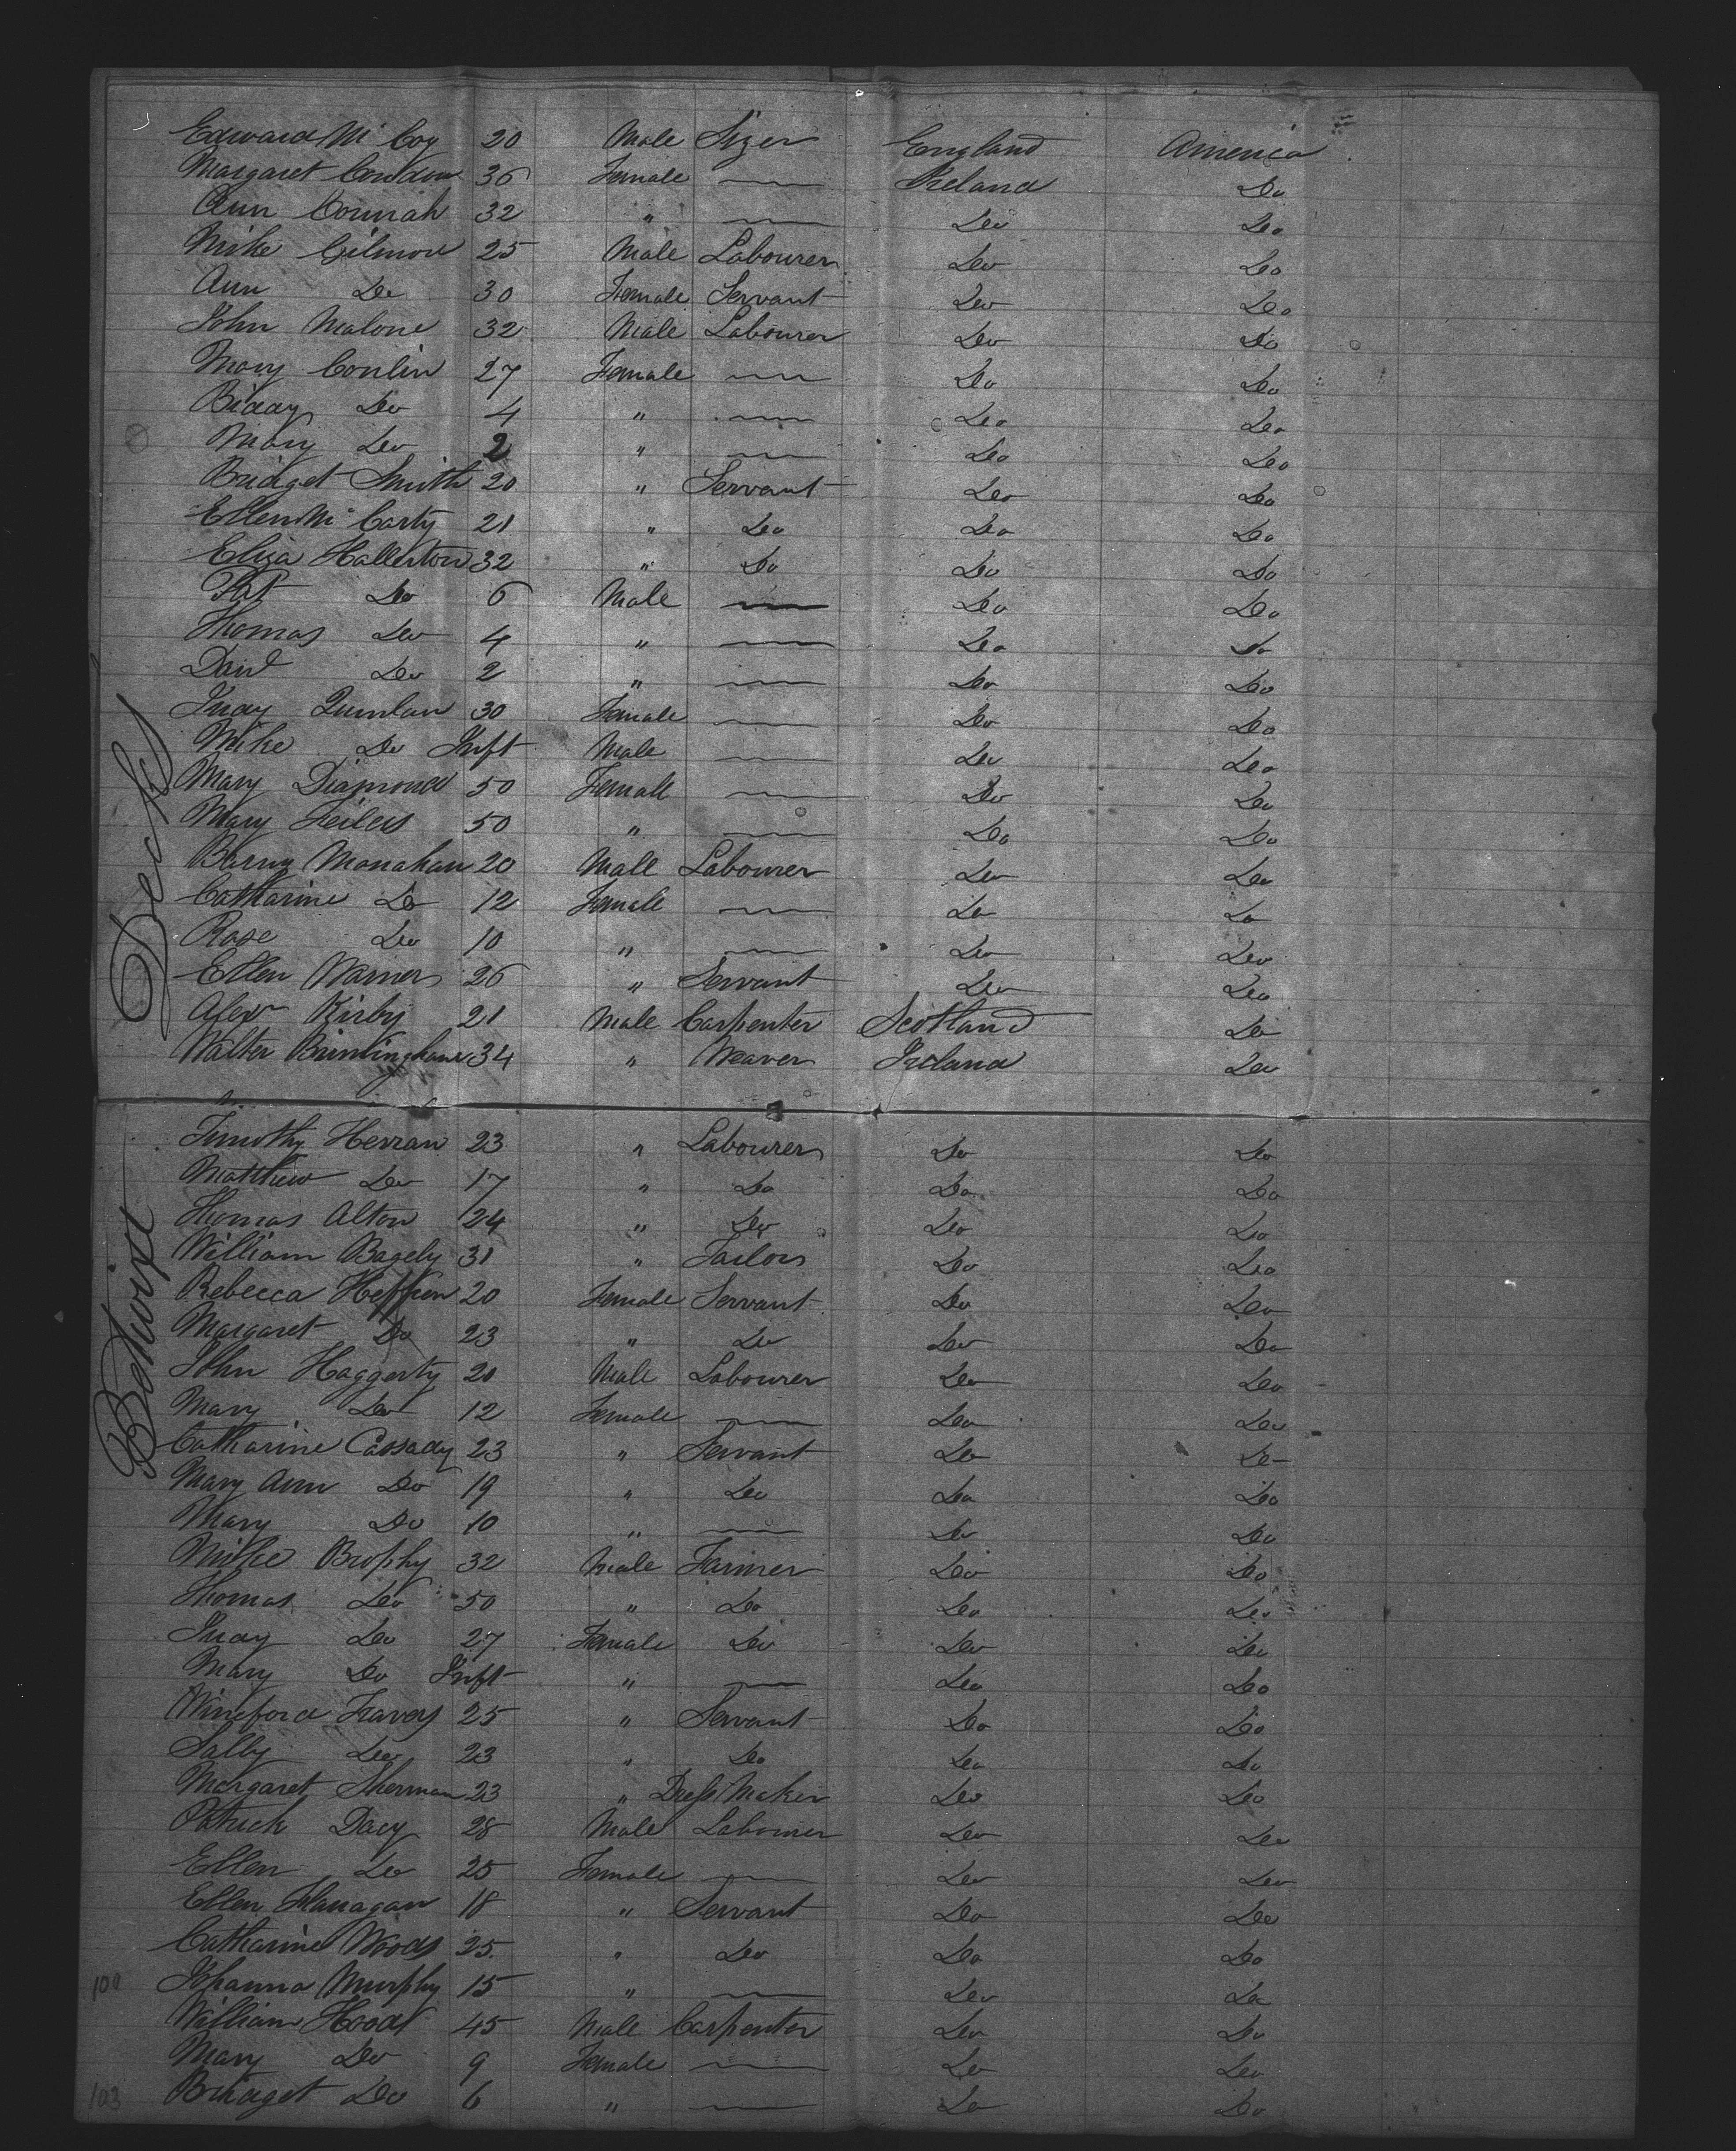 Edward Mc Coy 20 Male Sizer England America
Margaret Condon 36 Female — Ireland Do
Ann Connah 32 " — Do Do
Mike Gilmore 25 Male Labourer Do Do
Ann Do 30 Female Servant Do Do
John Malone 32 Male Labourer Do Do
Mary Conlin 27 Female — Do Do
Biddy Do 4 " — Do Do
Mary Do 2 " — Do Do
Bridget Smith 20 " Servant Do Do
Ellen Mc Carty 21 " Do Do Do
Eliza Hallerton 32 " Do Do Do
Pat Do 6 Male — Do Do
Thomas Do 4 " — Do Do
Davd Do 2 " — Do Do
Judy Quinlan 30 Female — Do Do
Mike Do Inft Male — Do Do
Mary Diamond 50 Female — Do Do
Mary 50 " — Do Do
Barny Monahan 20 Male Labourer Do Do
Catharine Do 12 Female — Do Do
Rose Do 10 " — Do Do
Ellen Warner 26 " Servant Do Do
Alexr Kirby 21 Male Carpenter Scotland Do
Walter Brintingham 34 " Weaver Ireland Do
Decks
Timothy Herran 23 " Labourer Do Do
Matthew Do 17 " Do Do Do
Thomas Alton 24 " Do Do Do
William Bagely 31 " Tailor Do Do
Rebecca Heffren 20 Female Servant Do Do
Margaret Do 23 " Do Do Do
John Haggerty 20 Male Labourer Do Do
Mary Do 12 Female — Do Do
Catharine Cassady 23 " Servant Do Do
Mary Ann Do 19 " Do Do Do
Mary Do 10 " — Do Do
Mike Brophy 32 Male Farmer Do Do
Thomas Do 50 " Do Do Do
Judy Do 27 Female Do Do Do
Mary Do Inft " — Do Do
Betwixt
Wineford Travers 25 " Servant Do Do
Sally Do 23 " Do Do Do
Margaret Sherman 23 " Dress Maker Do Do
Patrick Dacy 28 Male Labourer Do Do
Ellen Do 25 Female — Do Do
Ellen Flanagan 18 " Servant Do Do
Catharine Woods 25 " Do Do Do
100 Johanna Murphy 15 " — Do Do
William Hood 45 Male Carpenter Do Do
Mary Do 9 Female — Do Do
103 Bridget Do 6 " — Do Do